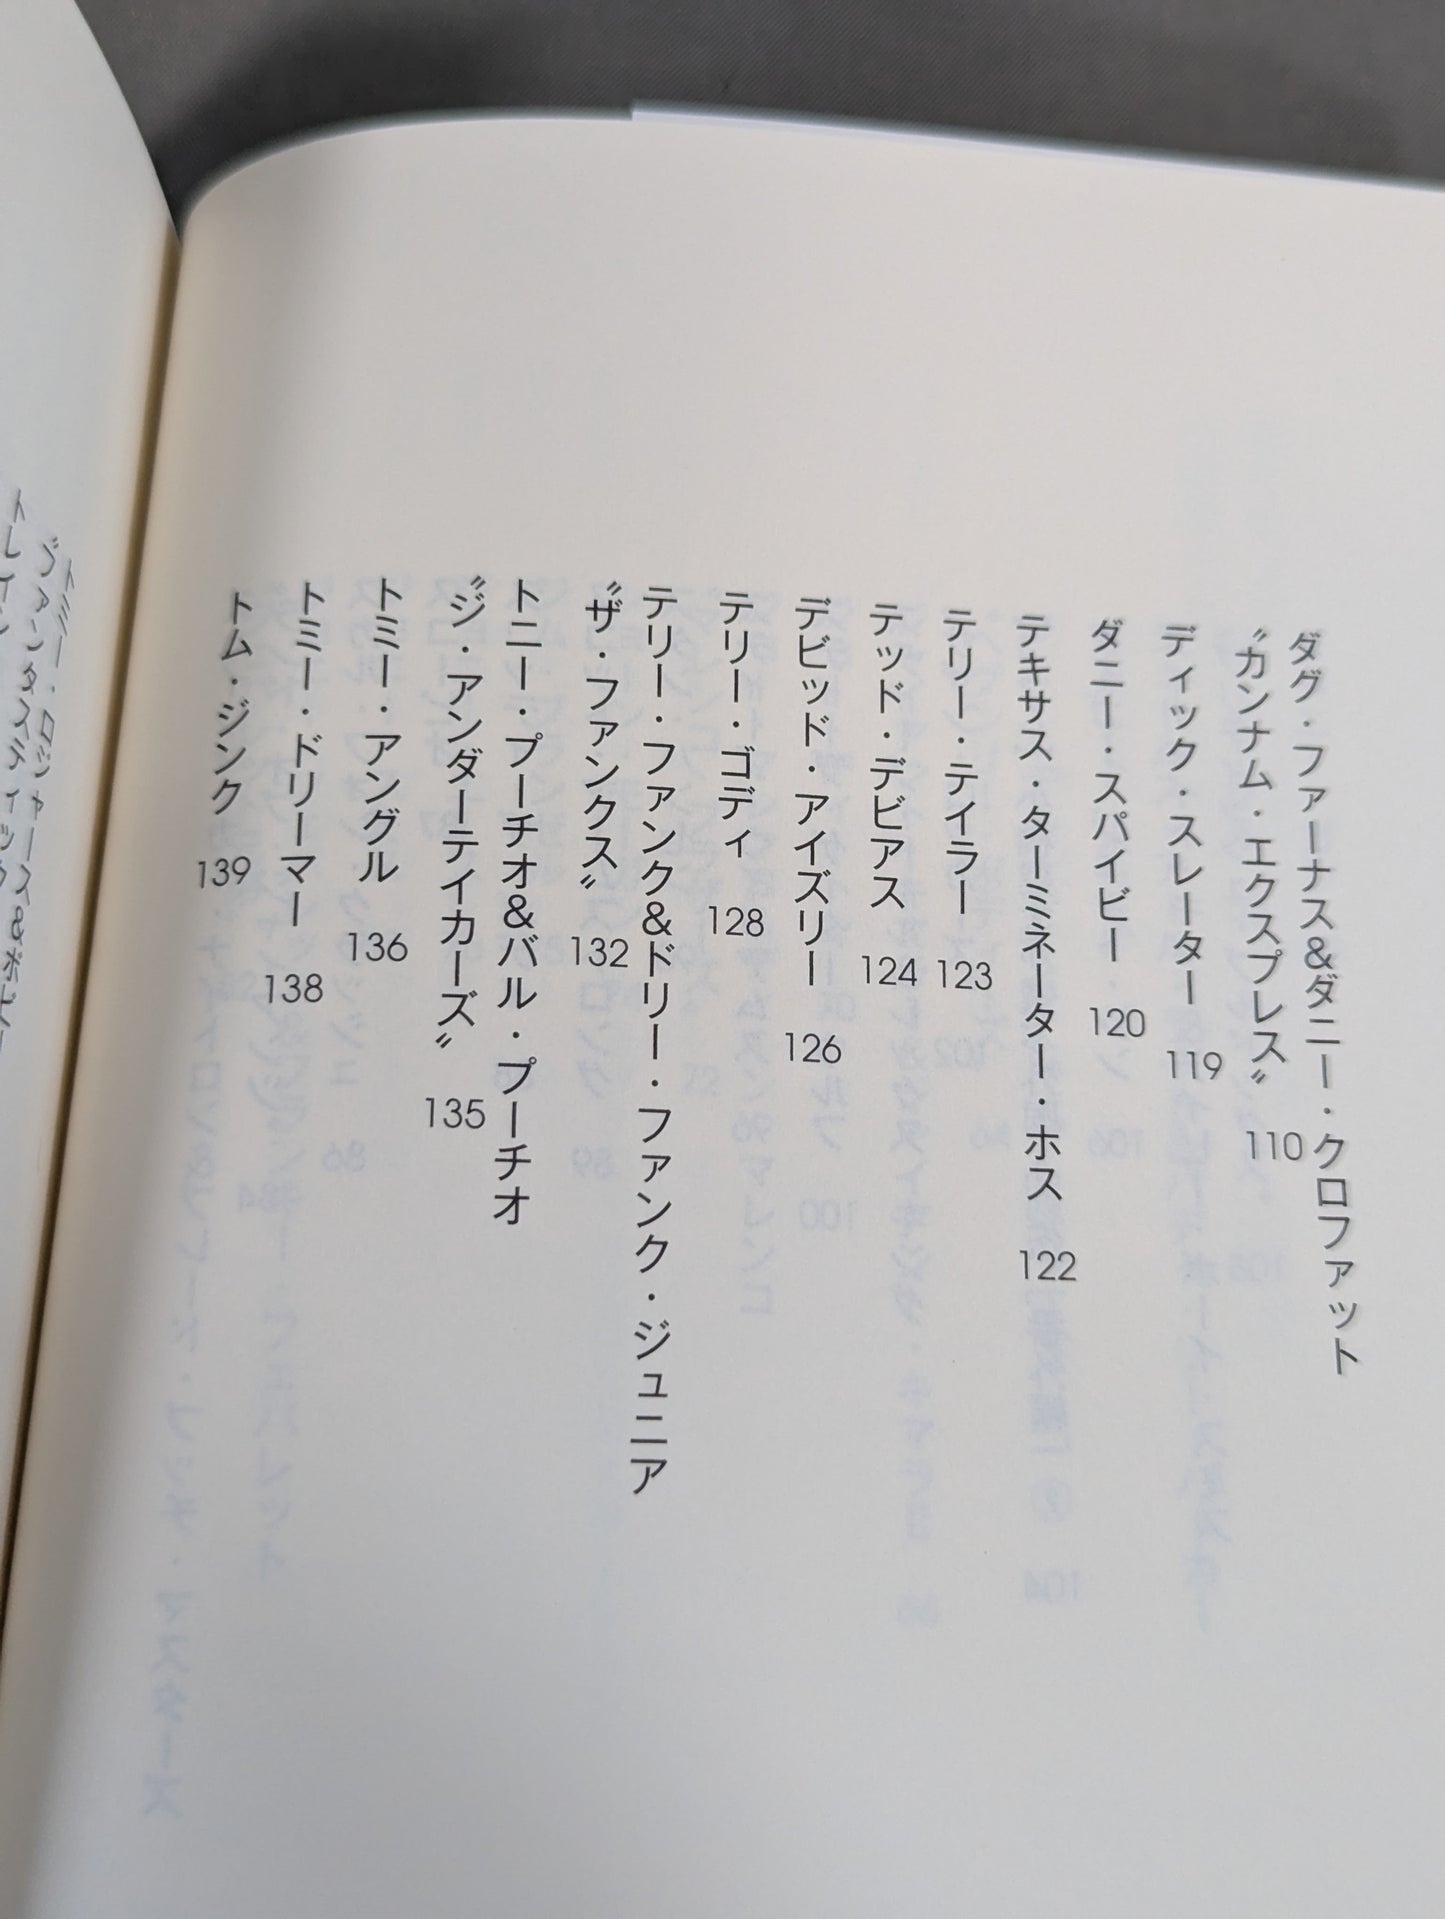 ダグ・ファーナス&ダニー・クロファット
〝カンナム・エクスプレス〟 110
ディック・スレーター 119
ダニー・スパイビー 120
テキサス・ターミネーター・ホス 122
テリー・テイラー 123
テッド・デビアス 124
デビッド・アイズリー 126
テリー・ゴディ 128
テリー・ファンク&ドリー・ファンク・ジュニア
〝ザ・ファンクス〟 132
トニー・プーチオ&バル・プーチオ
〝ジ・アンダーテイカーズ〟 135
トミー・アングル 136
トミー・ドリーマー 138
トム・ジンク 139
トミー・ロジャース&ボビー
〝ファンタスティック